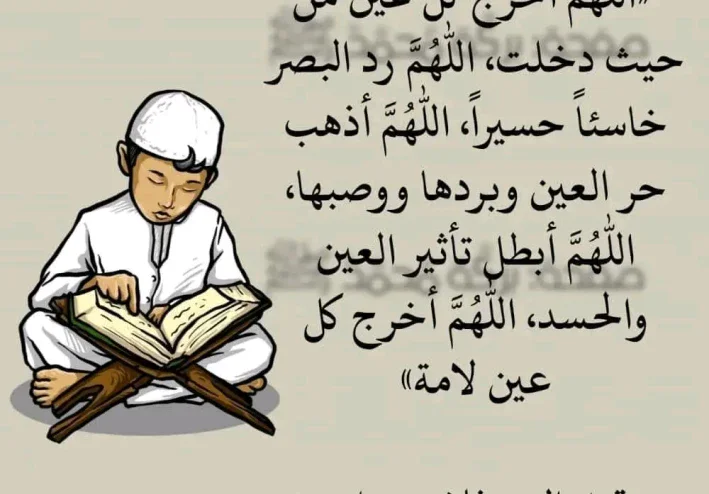 «اللهم أخرج كل عين من
حيث دخلت، اللَّهُمَّ رد البصر
خاسئاً حسيراً، اللَّهُمَّ أذهب
حر العين وبردها ووصبها،
اللَّهُمَّ أبطل تأثير العين
والحسد، اللَّهُمَّ أخرج كل
عين لامة»